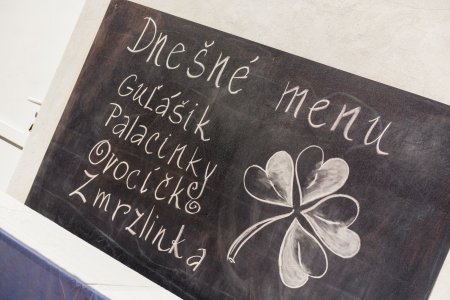 Dnešné menu
Guľášik
Palacinky
Ovocíčko
Zmrzlinka